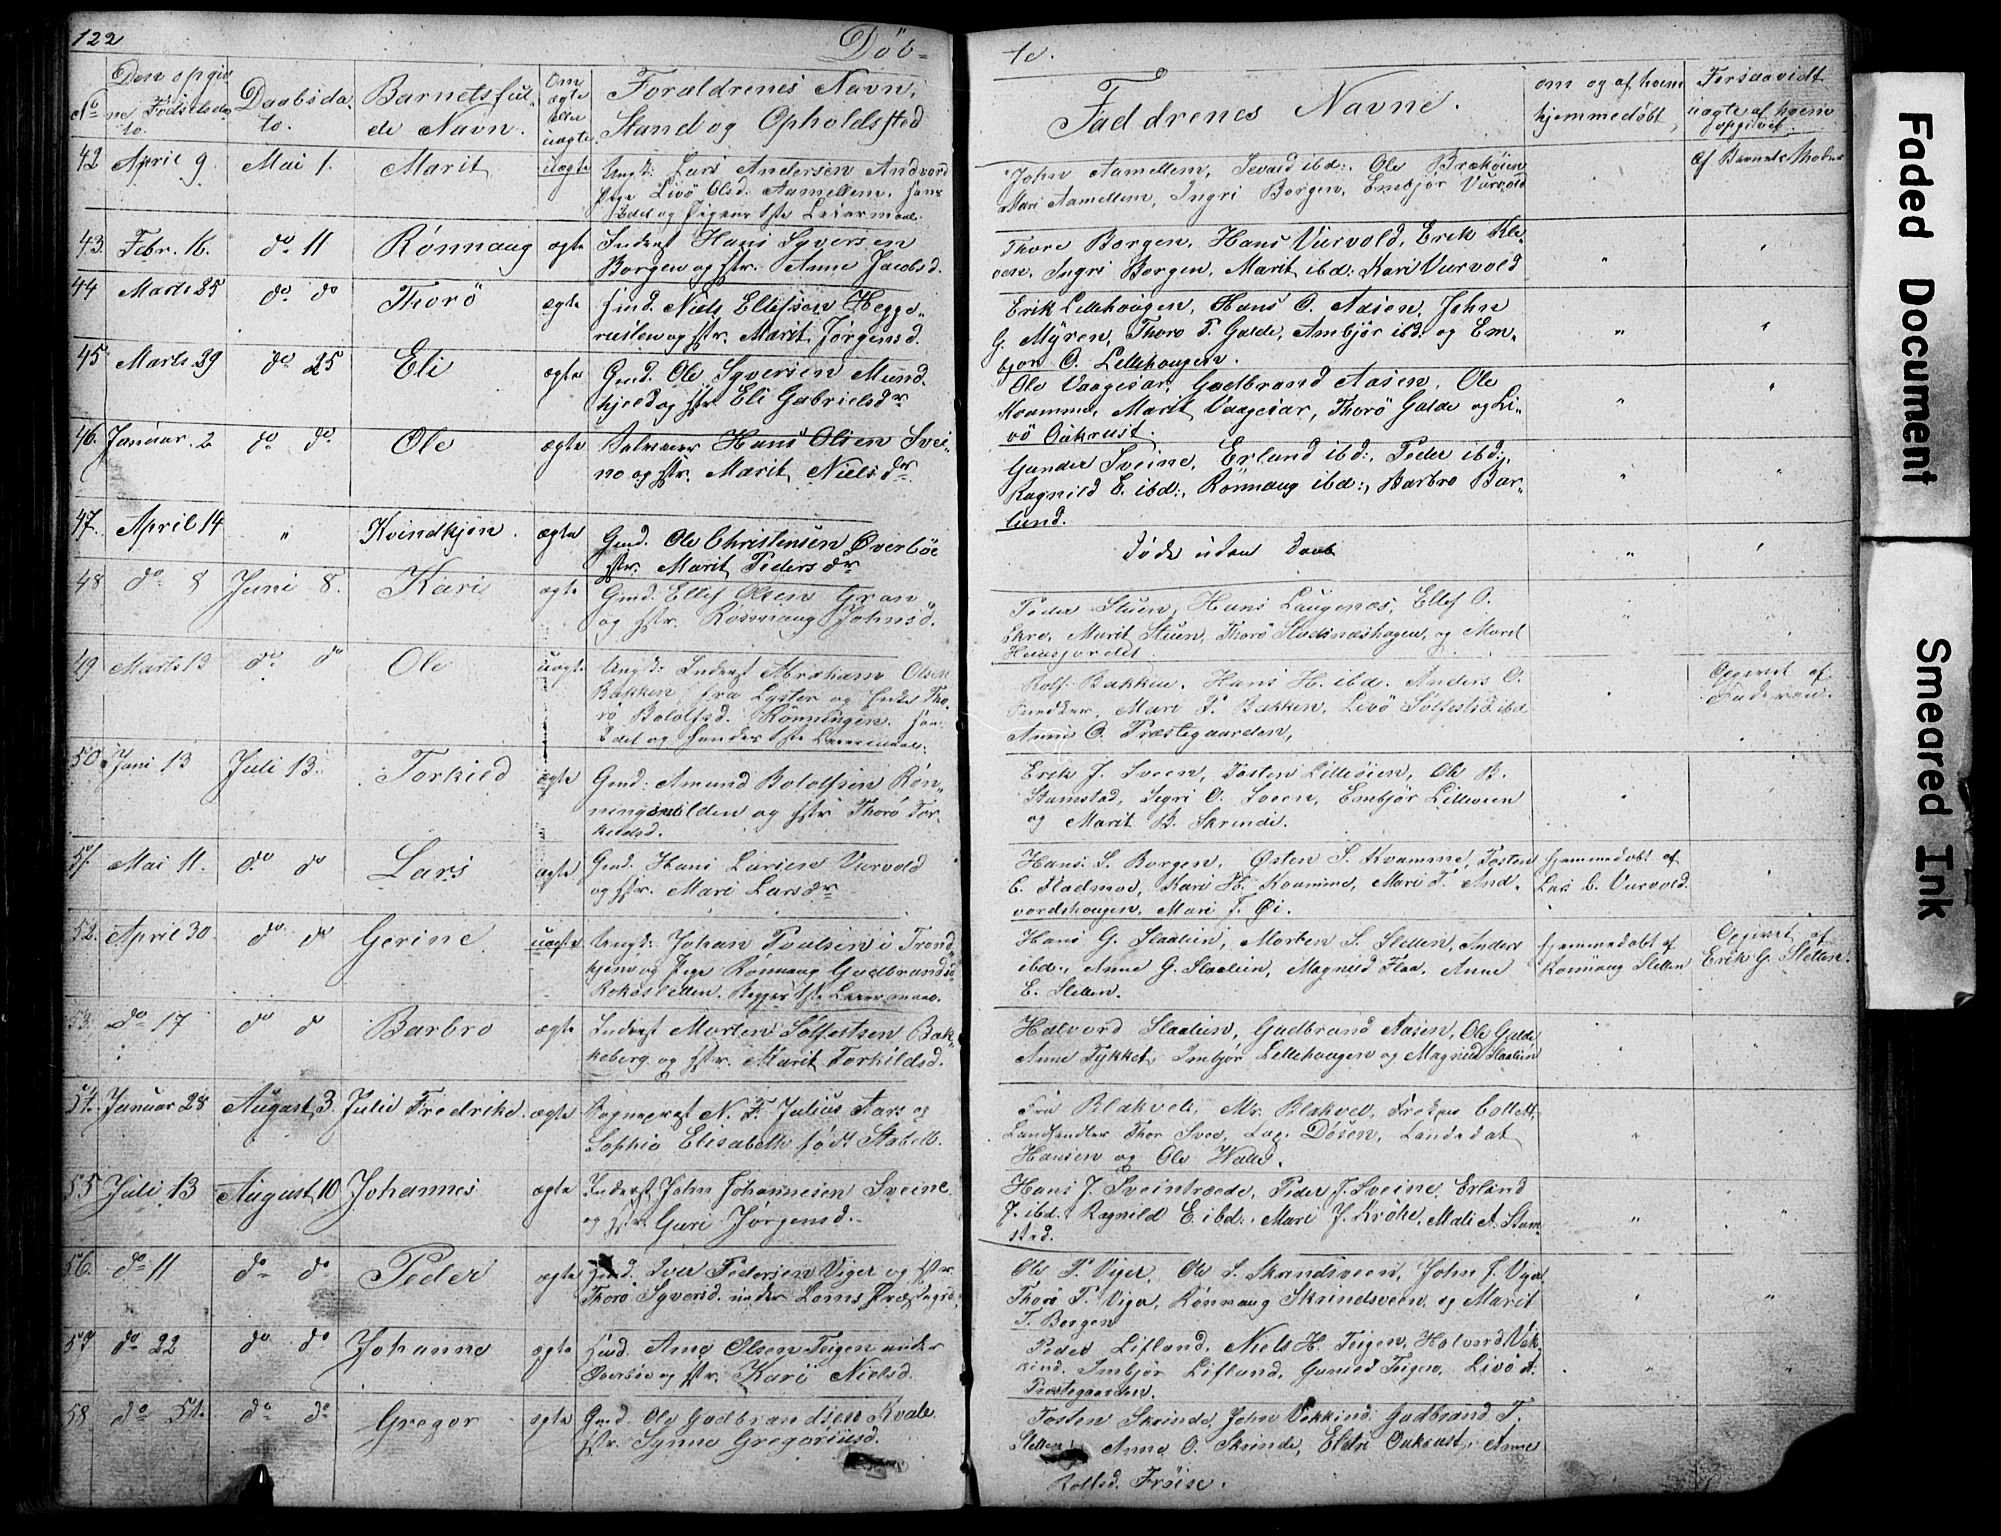 122
Döb=
te.
No
Den opgiv
ne Födselsda
to.
Daabsda
to.
Barnets ful-
de Navn.
Om
ægte
eller
uægte
Forældrenes Navn,
Stand og Opholdsted
Faddrenes Navne.
om og af hvem
hjemmedöbt,
Forsaavidt
uægte af hvem
opgivet.
42 April 9. Mai 1. Marit uægte Ungk: Lars Andersen Andvord
Pige Livö Olsd. Aamellem. hans
2det og Pigens 1ste Leiermaal.
John Aamellem, Sevald ibd:, Ole Bræköien
Mari Aamellem, Ingri Borgen, Embjör Vurvold
Af Barnets Moder
43. Febr. 16. do 11 Rönnaug ægte Inderst Hans Syversen
Borgen og Hstr. Anne Jacobsd.
Thore Borgen, Hans Vurvold, Erik Kle-
ven, Ingri Borgen, Marit ibd: Kari Vurvold
44 Marts 25 do do Thorö ægte Hmd. Niels Ellefsen Hegge-
rusten og Hstr. Marit Jörgensd.
Erik Lillehougen, Hans O. Aasen, John
G. Myren, Thoro T. Galde, Ambjör ibd. og Em-
björ O. Lillehougen.
45 Marts 29 do 25 Eli ægte Gmd. Ole Syversen Mund-
hjeld og Hstr. Eli Gabrielsdr
Ole Vaagesar, Gudbrand Aasen, Ole
Kvamme, Marit Vaagesar, Thorö Galde og Li-
vö Oukrust.
46. Januar. 2 do do Ole ægte Selveier Hans Olsen Svei-
ne og Hstr. Marit Nielsdr.
Gunder Sveine, Erland ibd:, Peder ibd:,
Ragnild E. ibd:, Rönnaug ibd:, Barbro Bar-
lund.
47. April 14 " Kvindkjön. ægte Gmd. Ole Christensen Øverböe
Hstr. Marit Pedersdr
Döde uden Daab
48 do 8 Juni 8. Kari ægte Gmd. Ellef Olsen Gran
og Hstr. Rönnaug Johnsd.
Peder Stuen, Hans Laugenæs, Ellef O.
Ekre, Marit Stuen, Thorö Stadsnæshagen, og Marit
Huusjordet.
49 Marts 13 do do Ole uægte Ungk: Inderst Abraham Olsen
Bakken fra Lyster og Enke Tho-
rö Bololfsd. Rönningen. hans
2det og hendes 1ste Leiermaal.
Rolf Bakken, Hans H. ibd. Anders O.
Snedker, Mari P. Bakken, Livö Solfestsd. ibd
Anne O. Præstegaarden,
Opgivet af
Faderen.
50. Juni 13 Juli 13. Torkied ægte Gmd: Amund Bololfsen Rön-
ningsvolden og Hstr Thorö Tor-
keldsd.
Erik J. Sveen, Tosten Lilleöien, Ole B.
Stamstad, Segri O. Sveen, Embjör Lilleöien
og Marit B. Skrinde.
51. Mai 11. do do Lars ægte Gmd. Hans Larsen Vurvold
og Hstr. Mari Larsdr
Hans S. Borgen, Østen S. Kvamme, Tosten
C. Fladmoe, Kari H. Kvamme, Mari T. And-
vordshougen, Mari T. Øi.
hjemmedöbt af
Lars C. Vurvold.
52. April 30. do do Gerine uægte Ungk: Johan Poulsen i Trond-
hjem og Pige Rönnaug Gudbrandsd.
Rokesletten. Begges 1ste Leiermaal.
Hans G. Slaalien, Morten S. Sletten, Anders
ibd:, Anne G. Slaalien, Magnild Flaa, Anne
E. Sletten.
hjemmedöbt af
Rönnaug Sletten
Opgivet af
Erik G. Sletten.
53. do 17 do do Barbro ægte Inderst Morten Solfestsen Bak-
keberg og Hstr. Marit Torkildsd.
Halvord Slaalien, Gudbrand Aasen, Ole Galde,
Anne Tykket, Imbjör Lillehougen og Magnild Slaalien
54. Januar 28 August 3. Julie Fredrike. ægte Sognepræst N. F. Julius Aars og
Sophie Elisabeth födt Stabell.
Fru Blakved, Mr. Blakved, Fröken Collett,
Landhandler Thor Svee, Lag. Dösen, Landsdat
Hansen og Ole Walle.
55 Juli 13 August 10 Johannes ægte Inderst John Johannesen Sveine
og Hstr Guri Jörgensd.
Hans J. Sveintræde, Peder J. Sveine, Erland
J. ibd: Ragnild E. ibd:, Mari J. Kröke, Mali A. Stam-
stad.
56. do 11 do do Peder ægte Hmd. Iver Pedersen Viger og Hstr.
Thorö Syversd. under Loms Præstegrd.
Ole P. Viger, Ole S. Skrindsveen, John J. Viger
Thorö P. Viger, Rönnaug Skrindsveen, og Marit
T. Borgen
57 do 22 do do Johanne ægte Hmd. Arne Olsen Teigen under
Överböe og Hstr. Karö Nielsd.
Peder Lifland, Niels H. Teigen, Halvord Vek-
kind, Imbjör Lifland, Gunild Teigen, Livö A.
Præstegaarden.
58 do 31. do do Gregor ægte Gmd. Ole Gudbrandsen Kvale
Hstr. Synne Gregoriusd.
Tosten Skrinde, John Vekkind, Gudbrand T.
Sletten, Anne O. Skrinde, Eldri Oukrust, Anne
Rolfsd. Fröise.
Faded Document
Smeared Ink